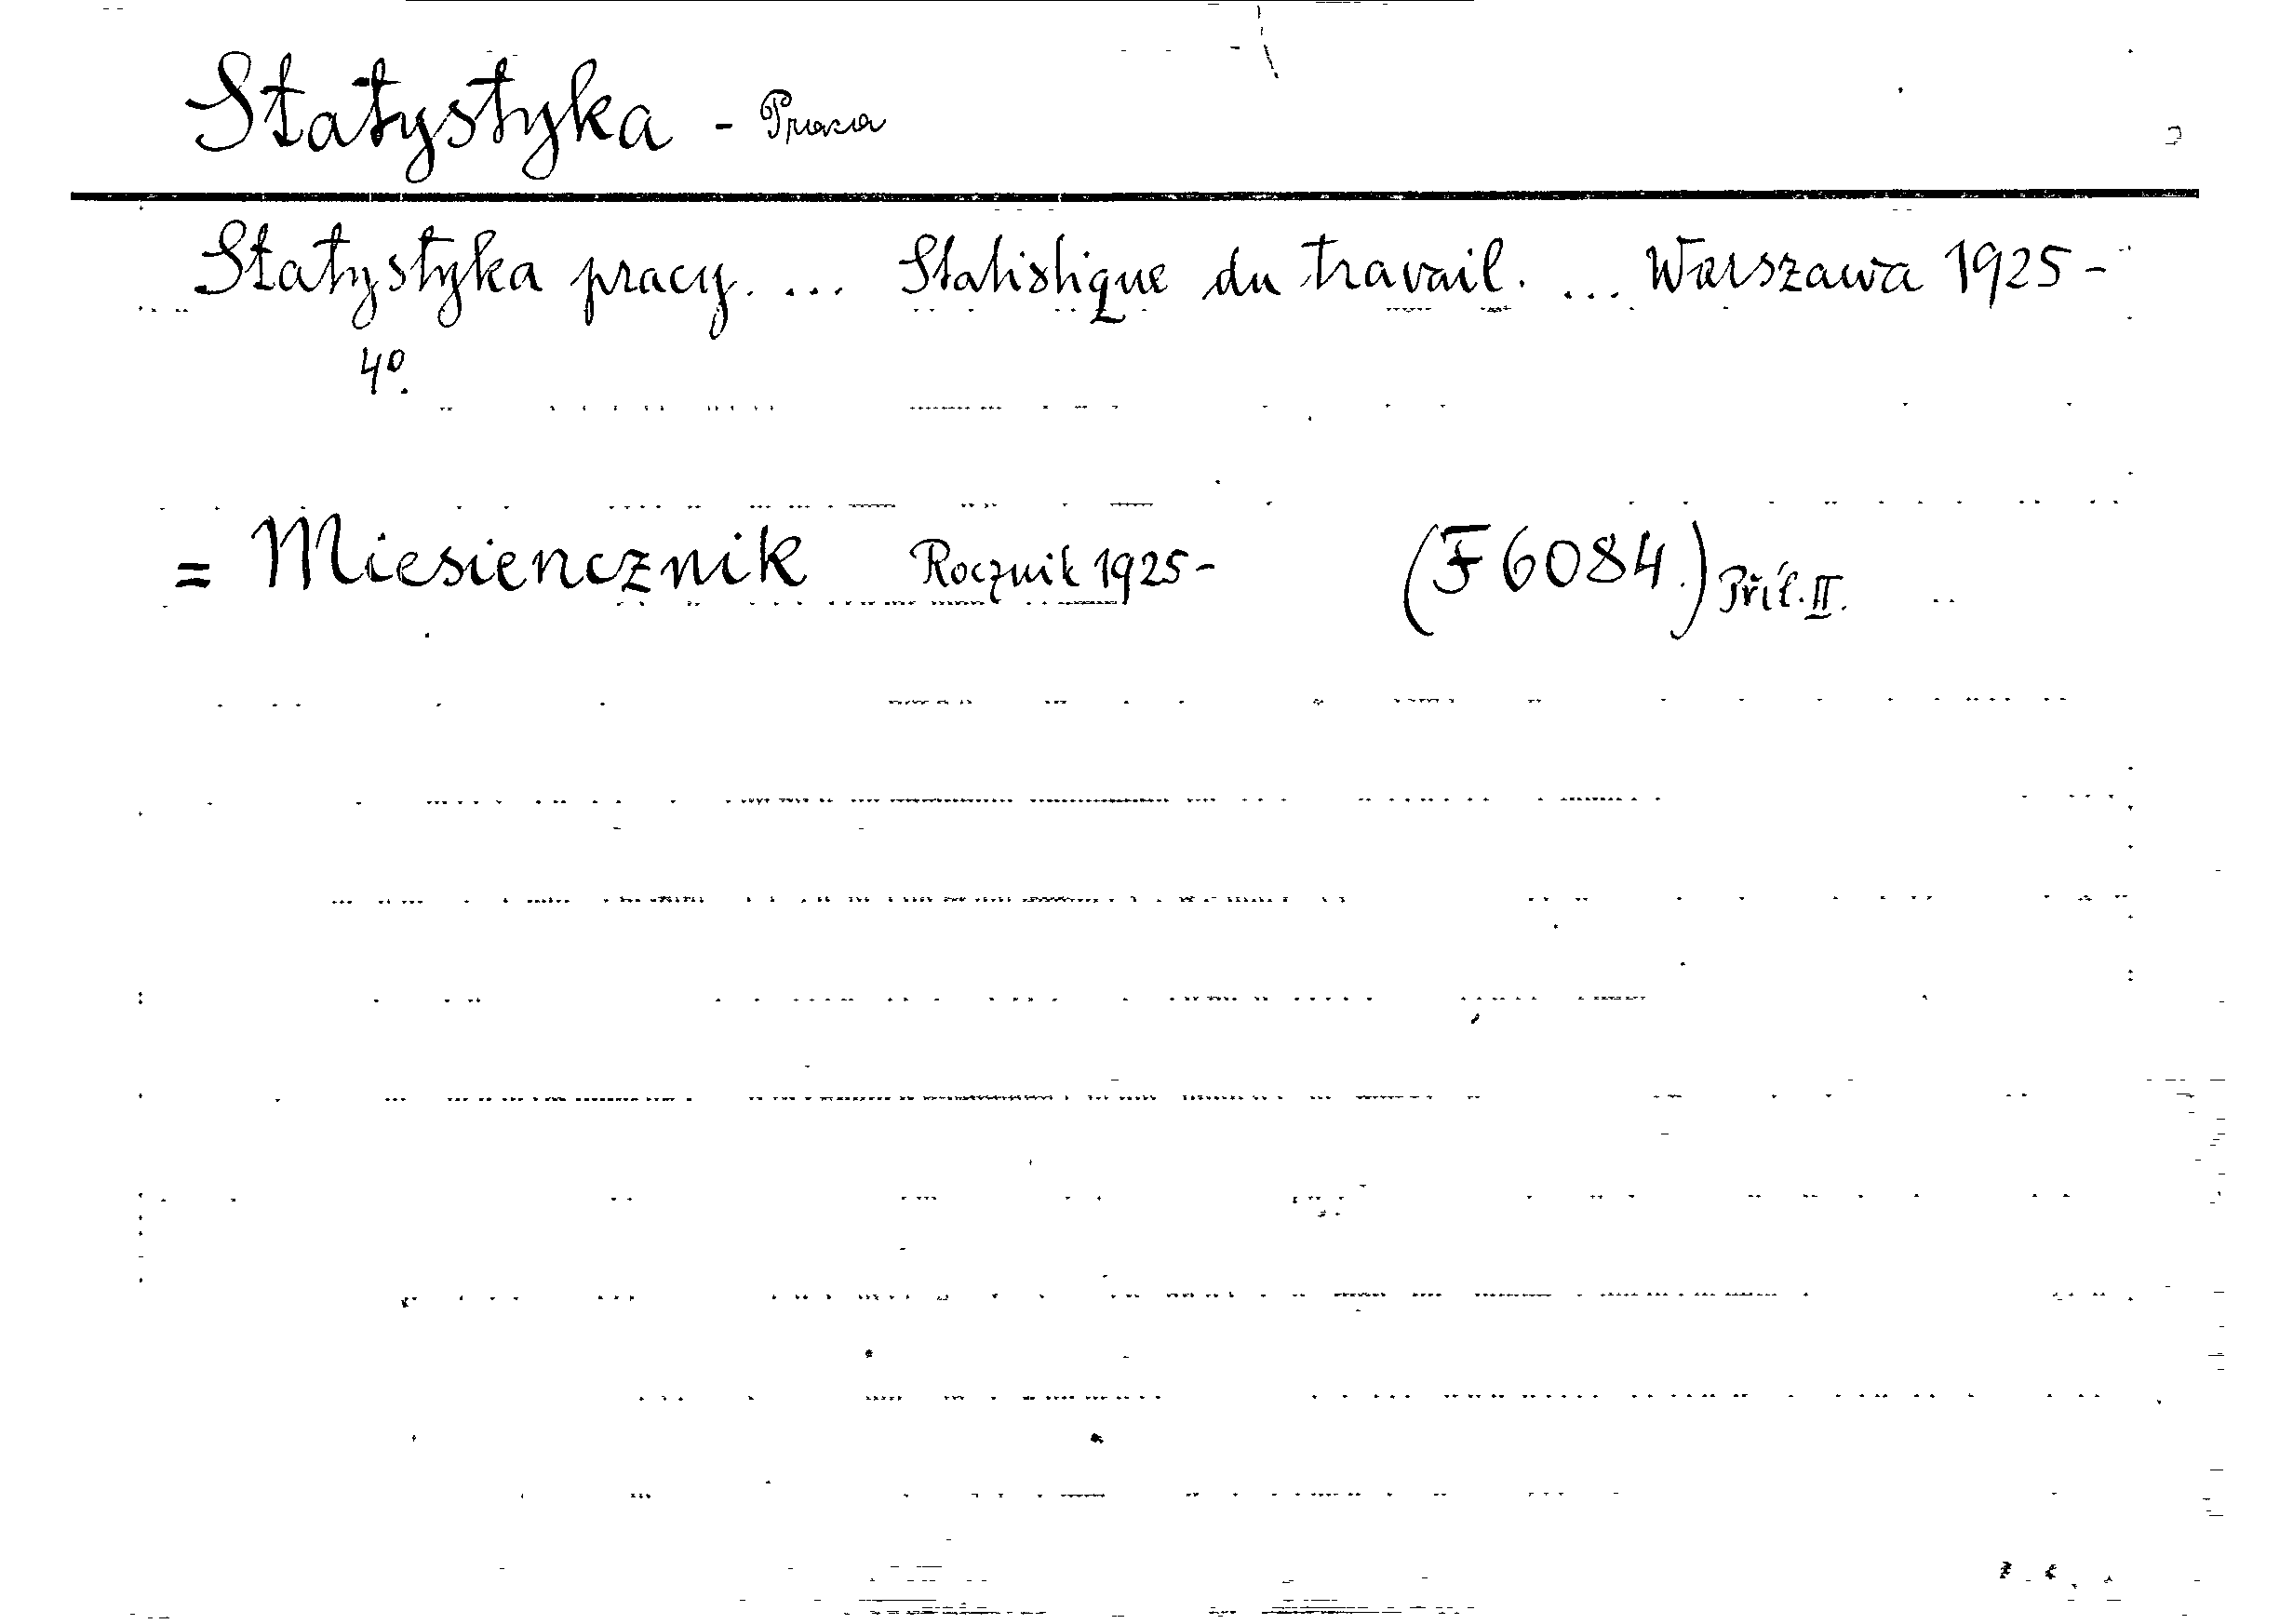 Statystyka - Praca
Statystyka pracy. ... Statistique du travail. ... Warszawa 1925-
4º.
= Miesiencznik Rocznik 1925- (F 6084.) Příl. II.